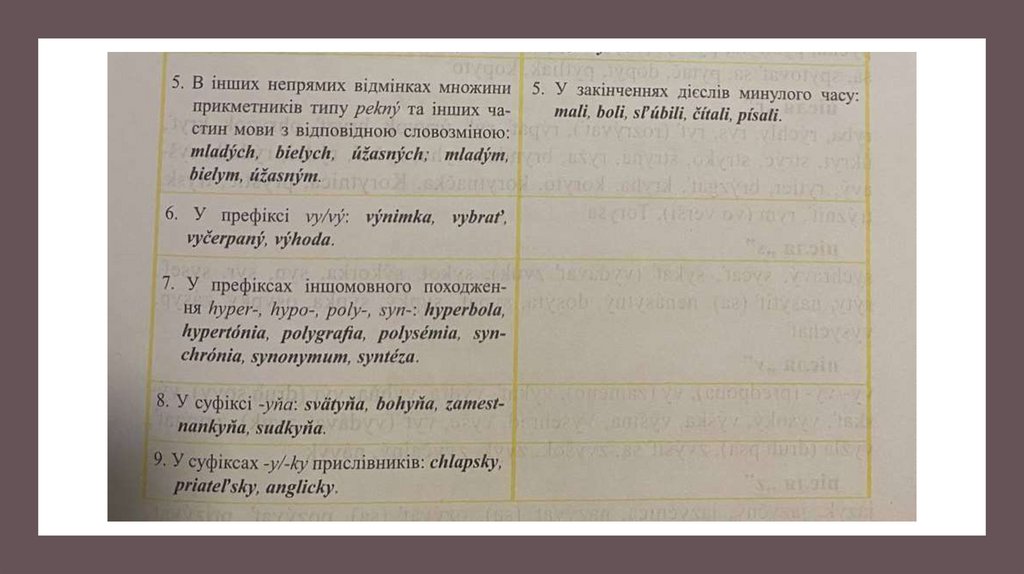 5. В інших непрямих відмінках множини
прикметників типу pekný та інших ча-
стин мови з відповідною словозміною:
mladých, bielych, úžasných; mladým,
bielym, úžasným.
5. У закінченнях дієслів минулого часу:
mali, boli, sľúbili, čítali, písali.
6. У префіксі vy/vý: výnimka, vybrať,
vyčerpaný, výhoda.
7. У префіксах іншомовного походжен-
ня hyper-, hypo-, poly-, syn-: hyperbola,
hypertónia, polygrafia, polysémia, syn-
chrónia, synonymum, syntéza.
8. У суфіксі -yňa: svätyňa, bohyňa, zamest-
nankyňa, sudkyňa.
9. У суфіксах -y/-ky прислівників: chlapsky,
priateľsky, anglicky.